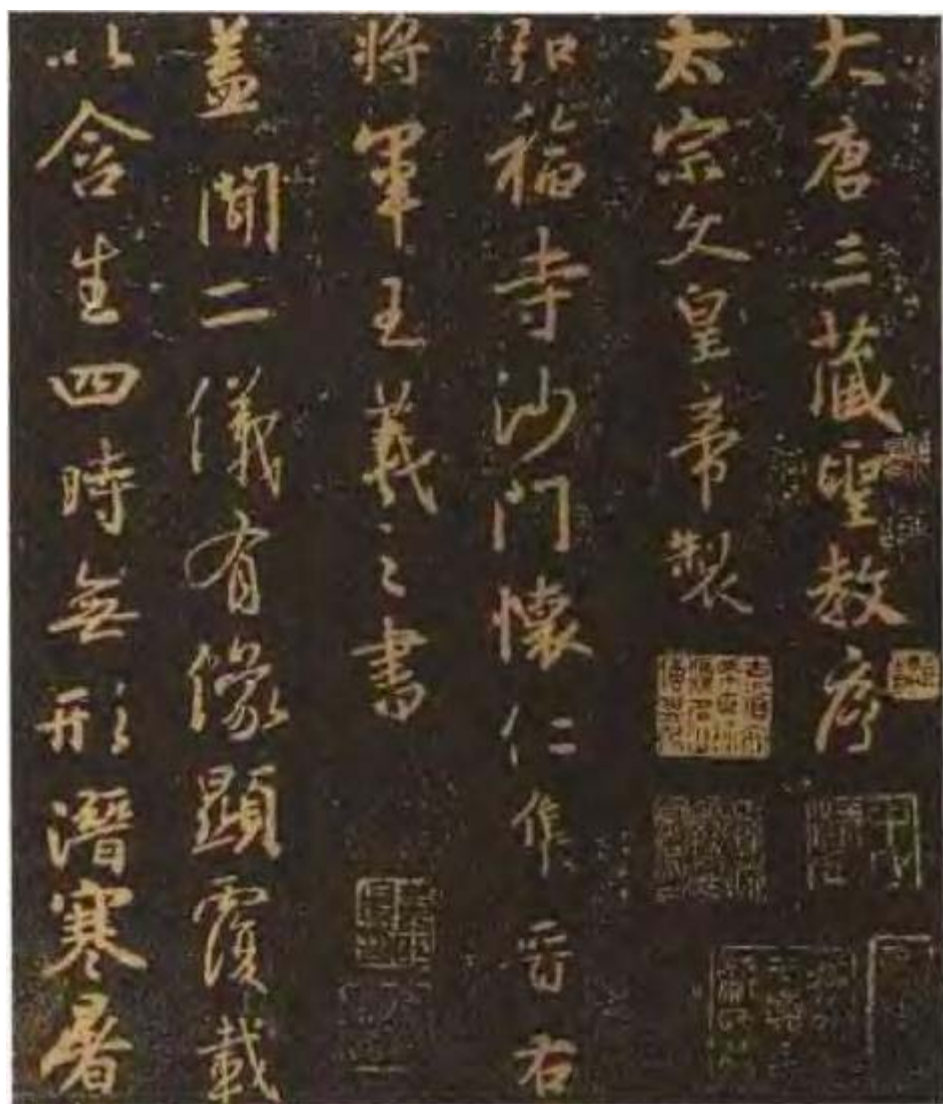 大唐三藏聖教序
太宗文皇帝製
弘福寺沙門懷仁集晉右
將軍王羲之書
蓋聞二儀有像顯覆載
以含生四時無形潛寒暑